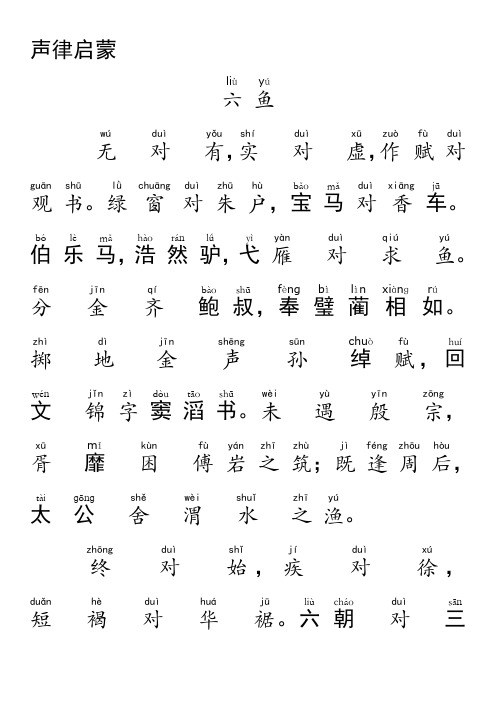 声律启蒙
liù yú
六 鱼
wú duì yǒu shí duì xū zuò fù duì
无 对 有，实 对 虚，作 赋 对
guān shū lǜ chuāng duì zhū hù bǎo mǎ duì xiāng jū
观 书。绿 窗 对 朱 户，宝 马 对 香 车。
bó lè mǎ hào rán lǘ yì yàn duì qiú yú
伯 乐 马，浩 然 驴，弋 雁 对 求 鱼。
fēn jīn qí bào shū fèng bì lìn xiàng rú
分 金 齐 鲍 叔，奉 璧 蔺 相 如。
zhì dì jīn shēng sūn chuò fù huí
掷 地 金 声 孙 绰 赋，回
wén jǐn zì dòu tāo shū wèi yù yīn zōng
文 锦 字 窦 滔 书。未 遇 殷 宗，
xū mí kùn fù yán zhī zhù jì féng zhōu hòu
胥 靡 困 傅 岩 之 筑；既 逢 周 后，
tài gōng shě wèi shuǐ zhī yú
太 公 舍 渭 水 之 渔。
zhōng duì shǐ jí duì xú
终 对 始，疾 对 徐，
duǎn hè duì huá jū liù cháo duì sān
短 褐 对 华 裾。六 朝 对 三